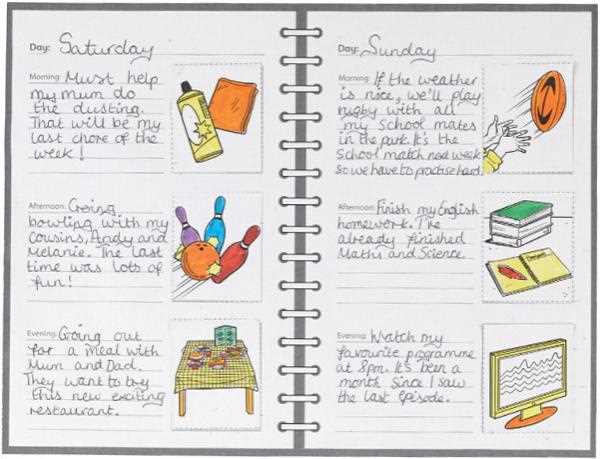 Day: Saturday
Morning: Must help
my mum do
the dusting.
That will be my
last chore of the
week!
Afternoon: Going
bowling with my
cousins, Andy and
Melanie. The last
time was lots of
fun!
Evening: Going out
for a meal with
Mum and Dad.
They want to try
this new exciting
restaurant.
Day: Sunday
Morning: If the weather
is nice, we'll play
rugby with all
my School mates
in the park. It's the
School match next week
so we have to practise hard.
Afternoon: Finish my English
homework. I've
already finished
Maths and Science.
Evening: Watch my
favourite programme
at 8pm. It's been a
month since I saw
the last episode.